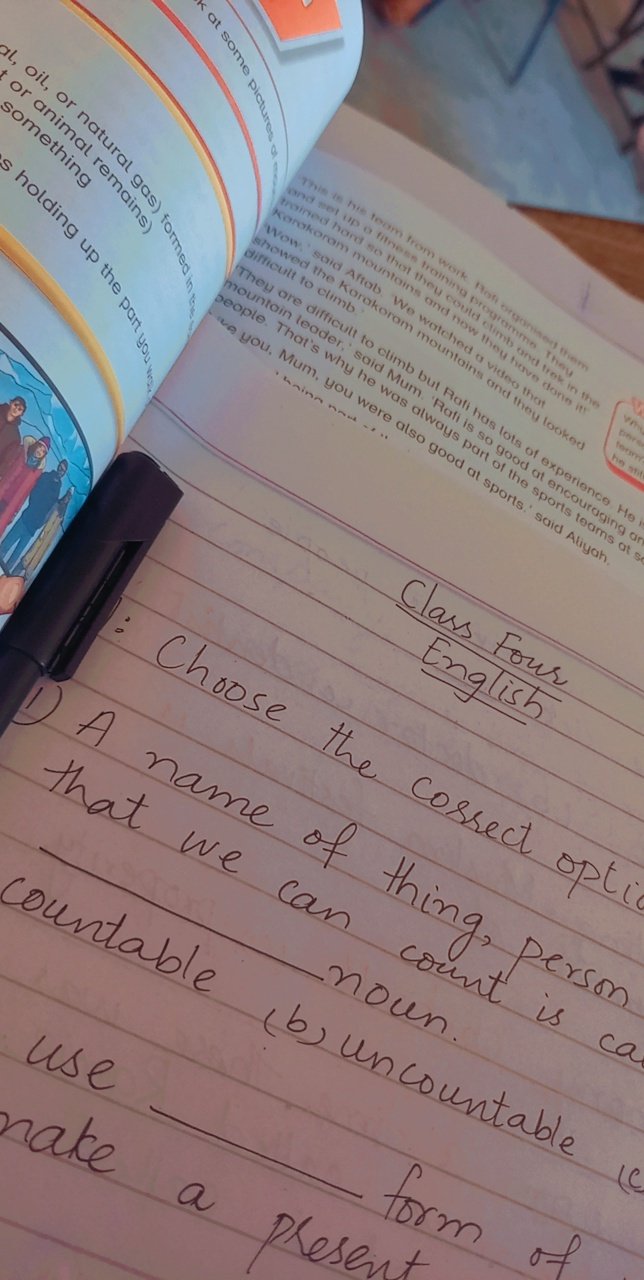 k at some pictures of
al, oil, or natural gas) formed in the
t or animal remains)
something
s holding up the part you
This is his team from work. Rafi organised them
and set up a fitness training programme. They
trained hard so that they could climb and trek in the
Karakoram mountains and now they have done it!'
'Wow,' said Aftab. 'We watched a video that
showed the Karakoram mountains and they looked
difficult to climb.'
'They are difficult to climb but Rafi has lots of experience. He
mountain leader,' said Mum. 'Rafi is so good at encouraging
people. That's why he was always part of the sports teams at
you, Mum, you were also good at sports,' said Aliyah.
being part of
Class Four
English
: Choose the correct optio
1) A name of thing, person
that we can count is ca
__________ noun.
countable (b) uncountable (c
use __________ form of
make a present